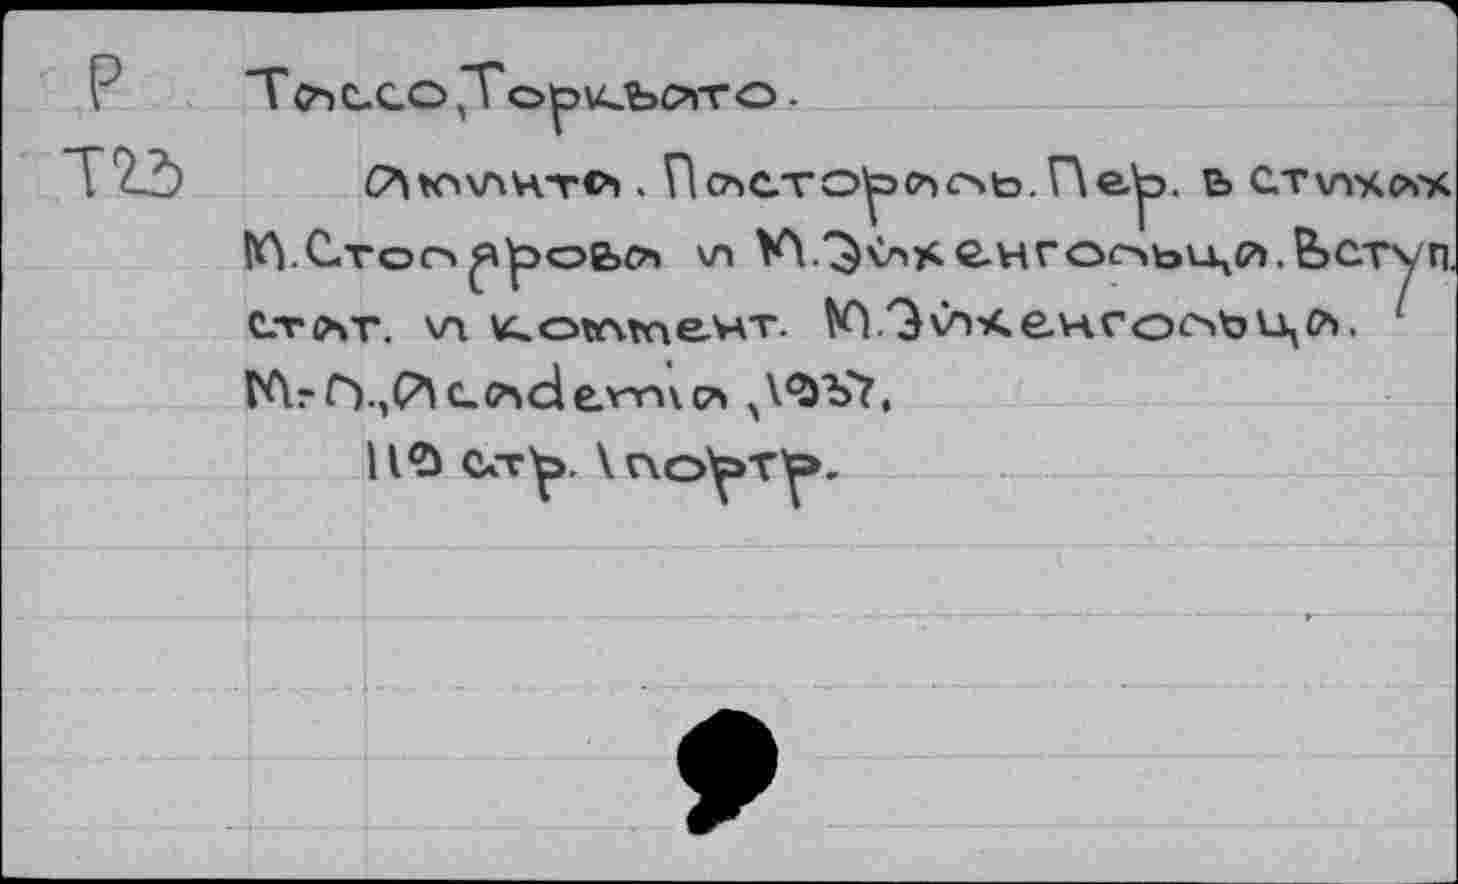 Р Тассо, Торквато.
Т23 Аминта. Пастораль. Пер. в стихах
М.Столярова и М.Эйхенгольца. Вступ.
стат. и коммент. М.Эйхенгольца.
М.-Л., Academia, 1937.
119 стр. 1 портр.